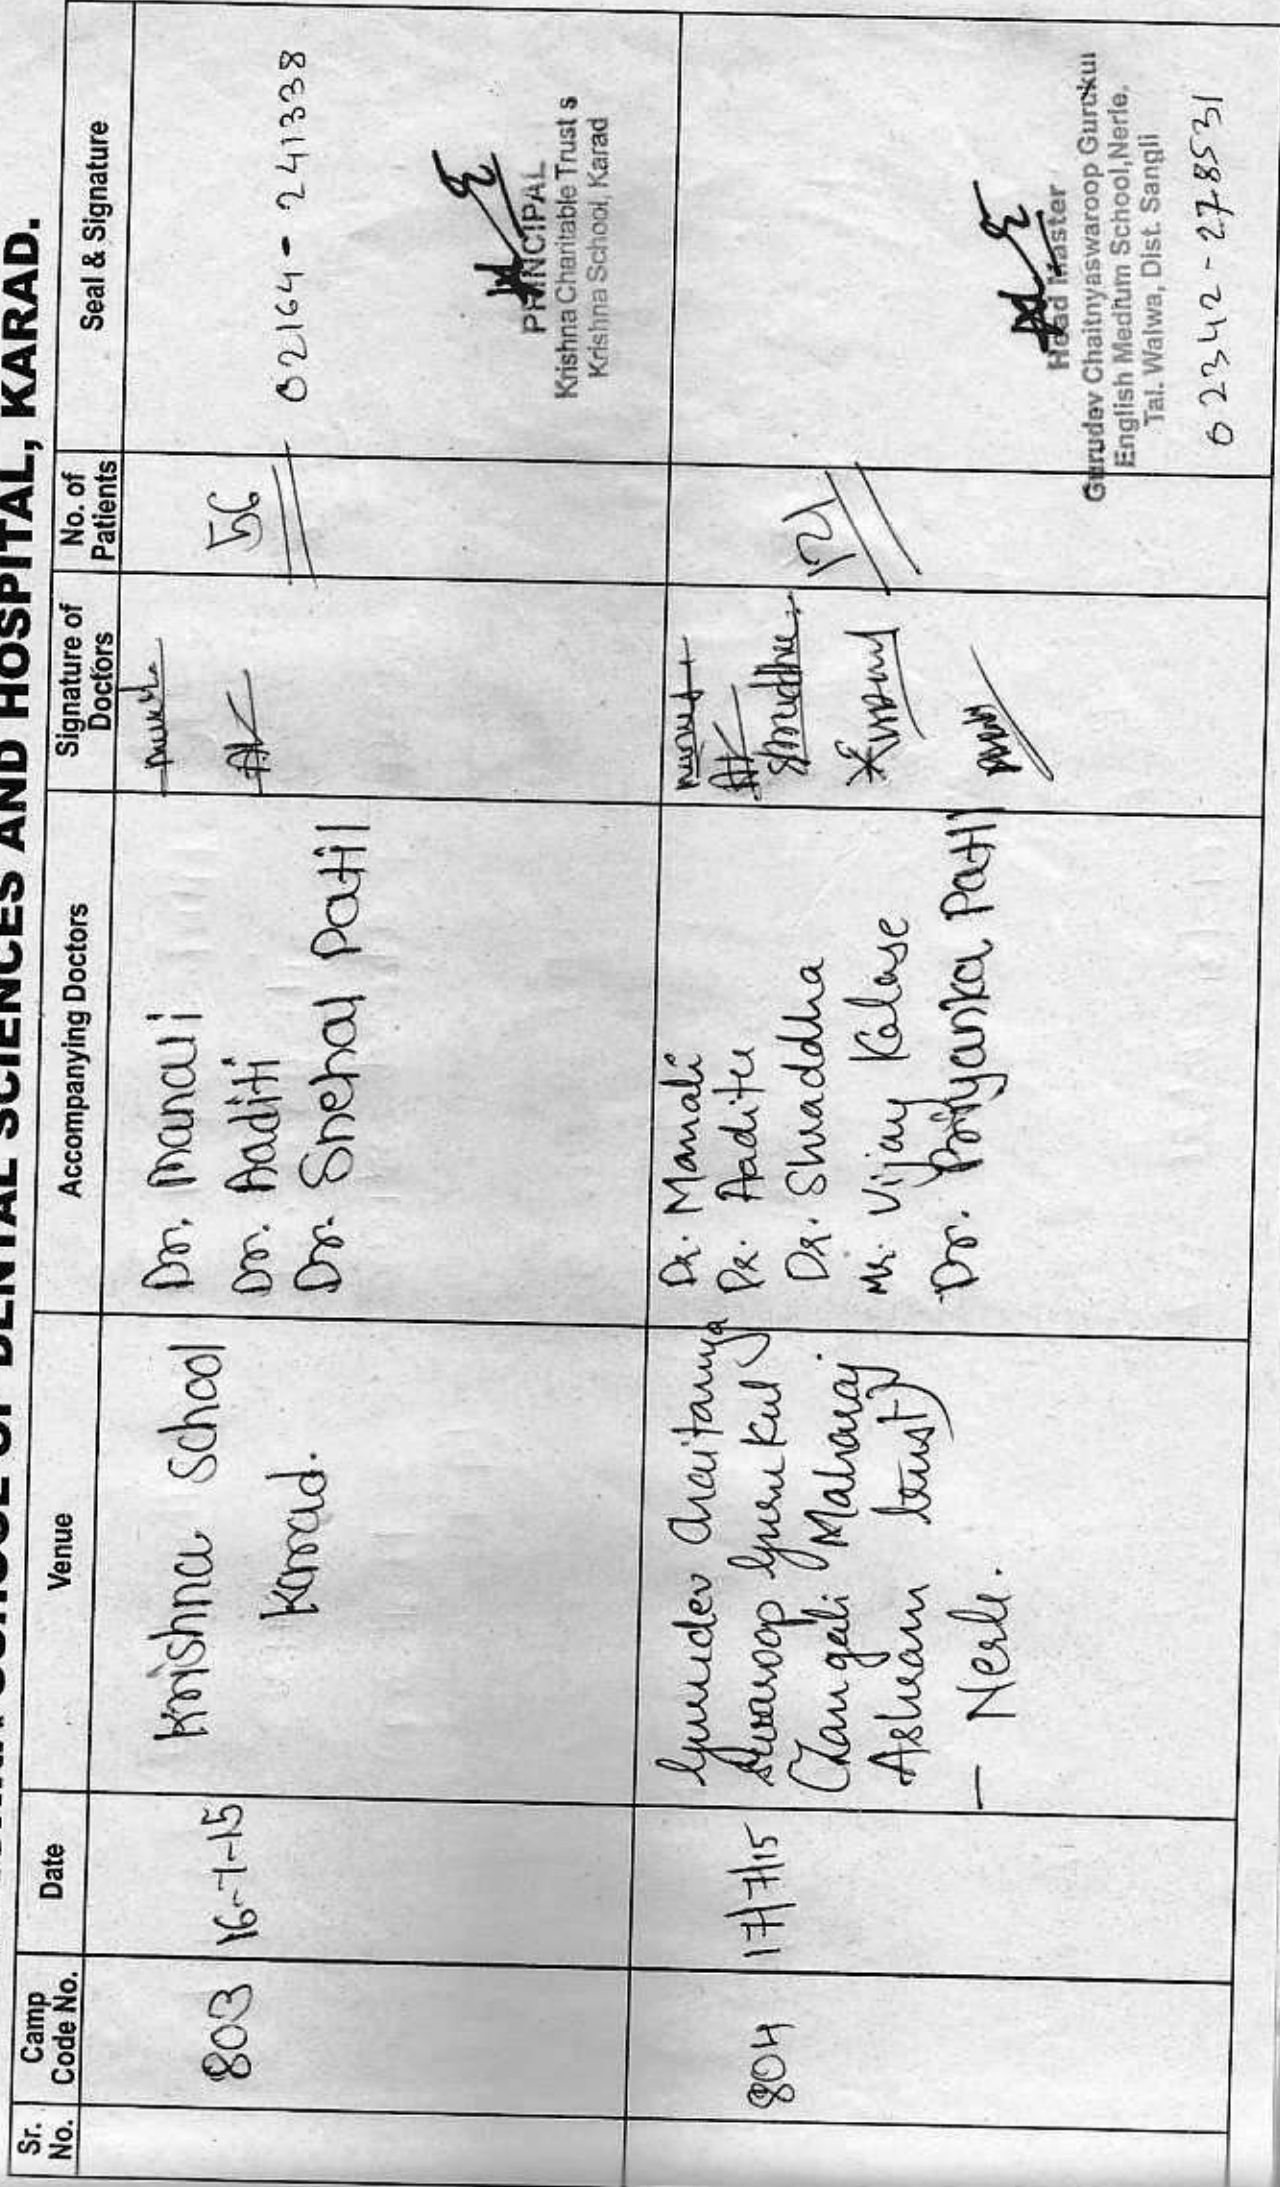 SCHOOL OF DENTAL SCIENCES AND HOSPITAL, KARAD.
Sr. No.
Camp Code No.
Date
Venue
Accompanying Doctors
Signature of Doctors
No. of Patients
Seal & Signature
803
16-7-15
Krishna School
Karad.
Dr. Manali
Dr. Aaditi
Dr. Snehal Patil
56
02164-241338
PRINCIPAL
Krishna Charitable Trust s
Krishna School, Karad
804
17/7/15
Gurudev Chaitanya
Swaroop Gurukul
Maharaj
Ashram trust)
— Nerle.
Dr. Manali
Dr. Aaditi
Dr. Shraddha
Mr. Vijay Kalase
Dr. Priyanka Patil
Shraddha
121
Head Master
Gurudev Chaitnyaswaroop Gurukul
English Medium School,Nerle.
Tal. Walwa, Dist. Sangli
02342-278531